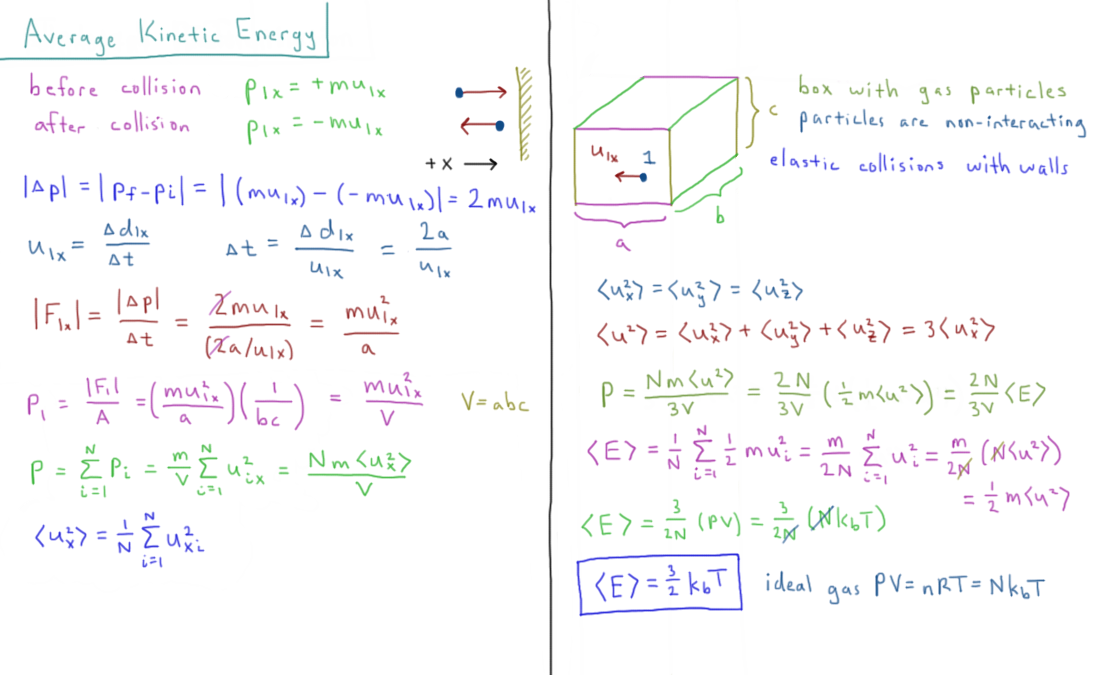 Average Kinetic Energy
before collision p₁ₓ = +mu₁ₓ
after collision p₁ₓ = -mu₁ₓ
+x →
|Δp| = |p_f - p_i| = |(mu₁ₓ) - (-mu₁ₓ)| = 2mu₁ₓ
u₁ₓ = Δd₁ₓ/Δt Δt = Δd₁ₓ/u₁ₓ = 2a/u₁ₓ
|F₁ₓ| = |Δp|/Δt = 2mu₁ₓ/(2a/u₁ₓ) = mu₁ₓ²/a
P₁ = |F₁|/A = (mu₁ₓ²/a)(1/bc) = mu₁ₓ²/V V = abc
P = Σ_{i=1}^{N} P_i = m/V Σ_{i=1}^{N} u_{ix}² = Nm⟨uₓ²⟩/V
⟨uₓ²⟩ = 1/N Σ_{i=1}^{N} u_{xi}²
box with gas particles
particles are non-interacting
elastic collisions with walls
u₁ₓ 1
a
b
c
⟨uₓ²⟩ = ⟨u_y²⟩ = ⟨u_z²⟩
⟨u²⟩ = ⟨uₓ²⟩ + ⟨u_y²⟩ + ⟨u_z²⟩ = 3⟨uₓ²⟩
P = Nm⟨u²⟩/3V = 2N/3V (½m⟨u²⟩) = 2N/3V ⟨E⟩
⟨E⟩ = 1/N Σ_{i=1}^{N} ½ mu_i² = m/2N Σ_{i=1}^{N} u_i² = m/2N (N⟨u²⟩)
= ½m⟨u²⟩
⟨E⟩ = 3/2N (PV) = 3/2N (Nk_bT)
⟨E⟩ = 3/2 k_bT ideal gas PV = nRT = Nk_bT